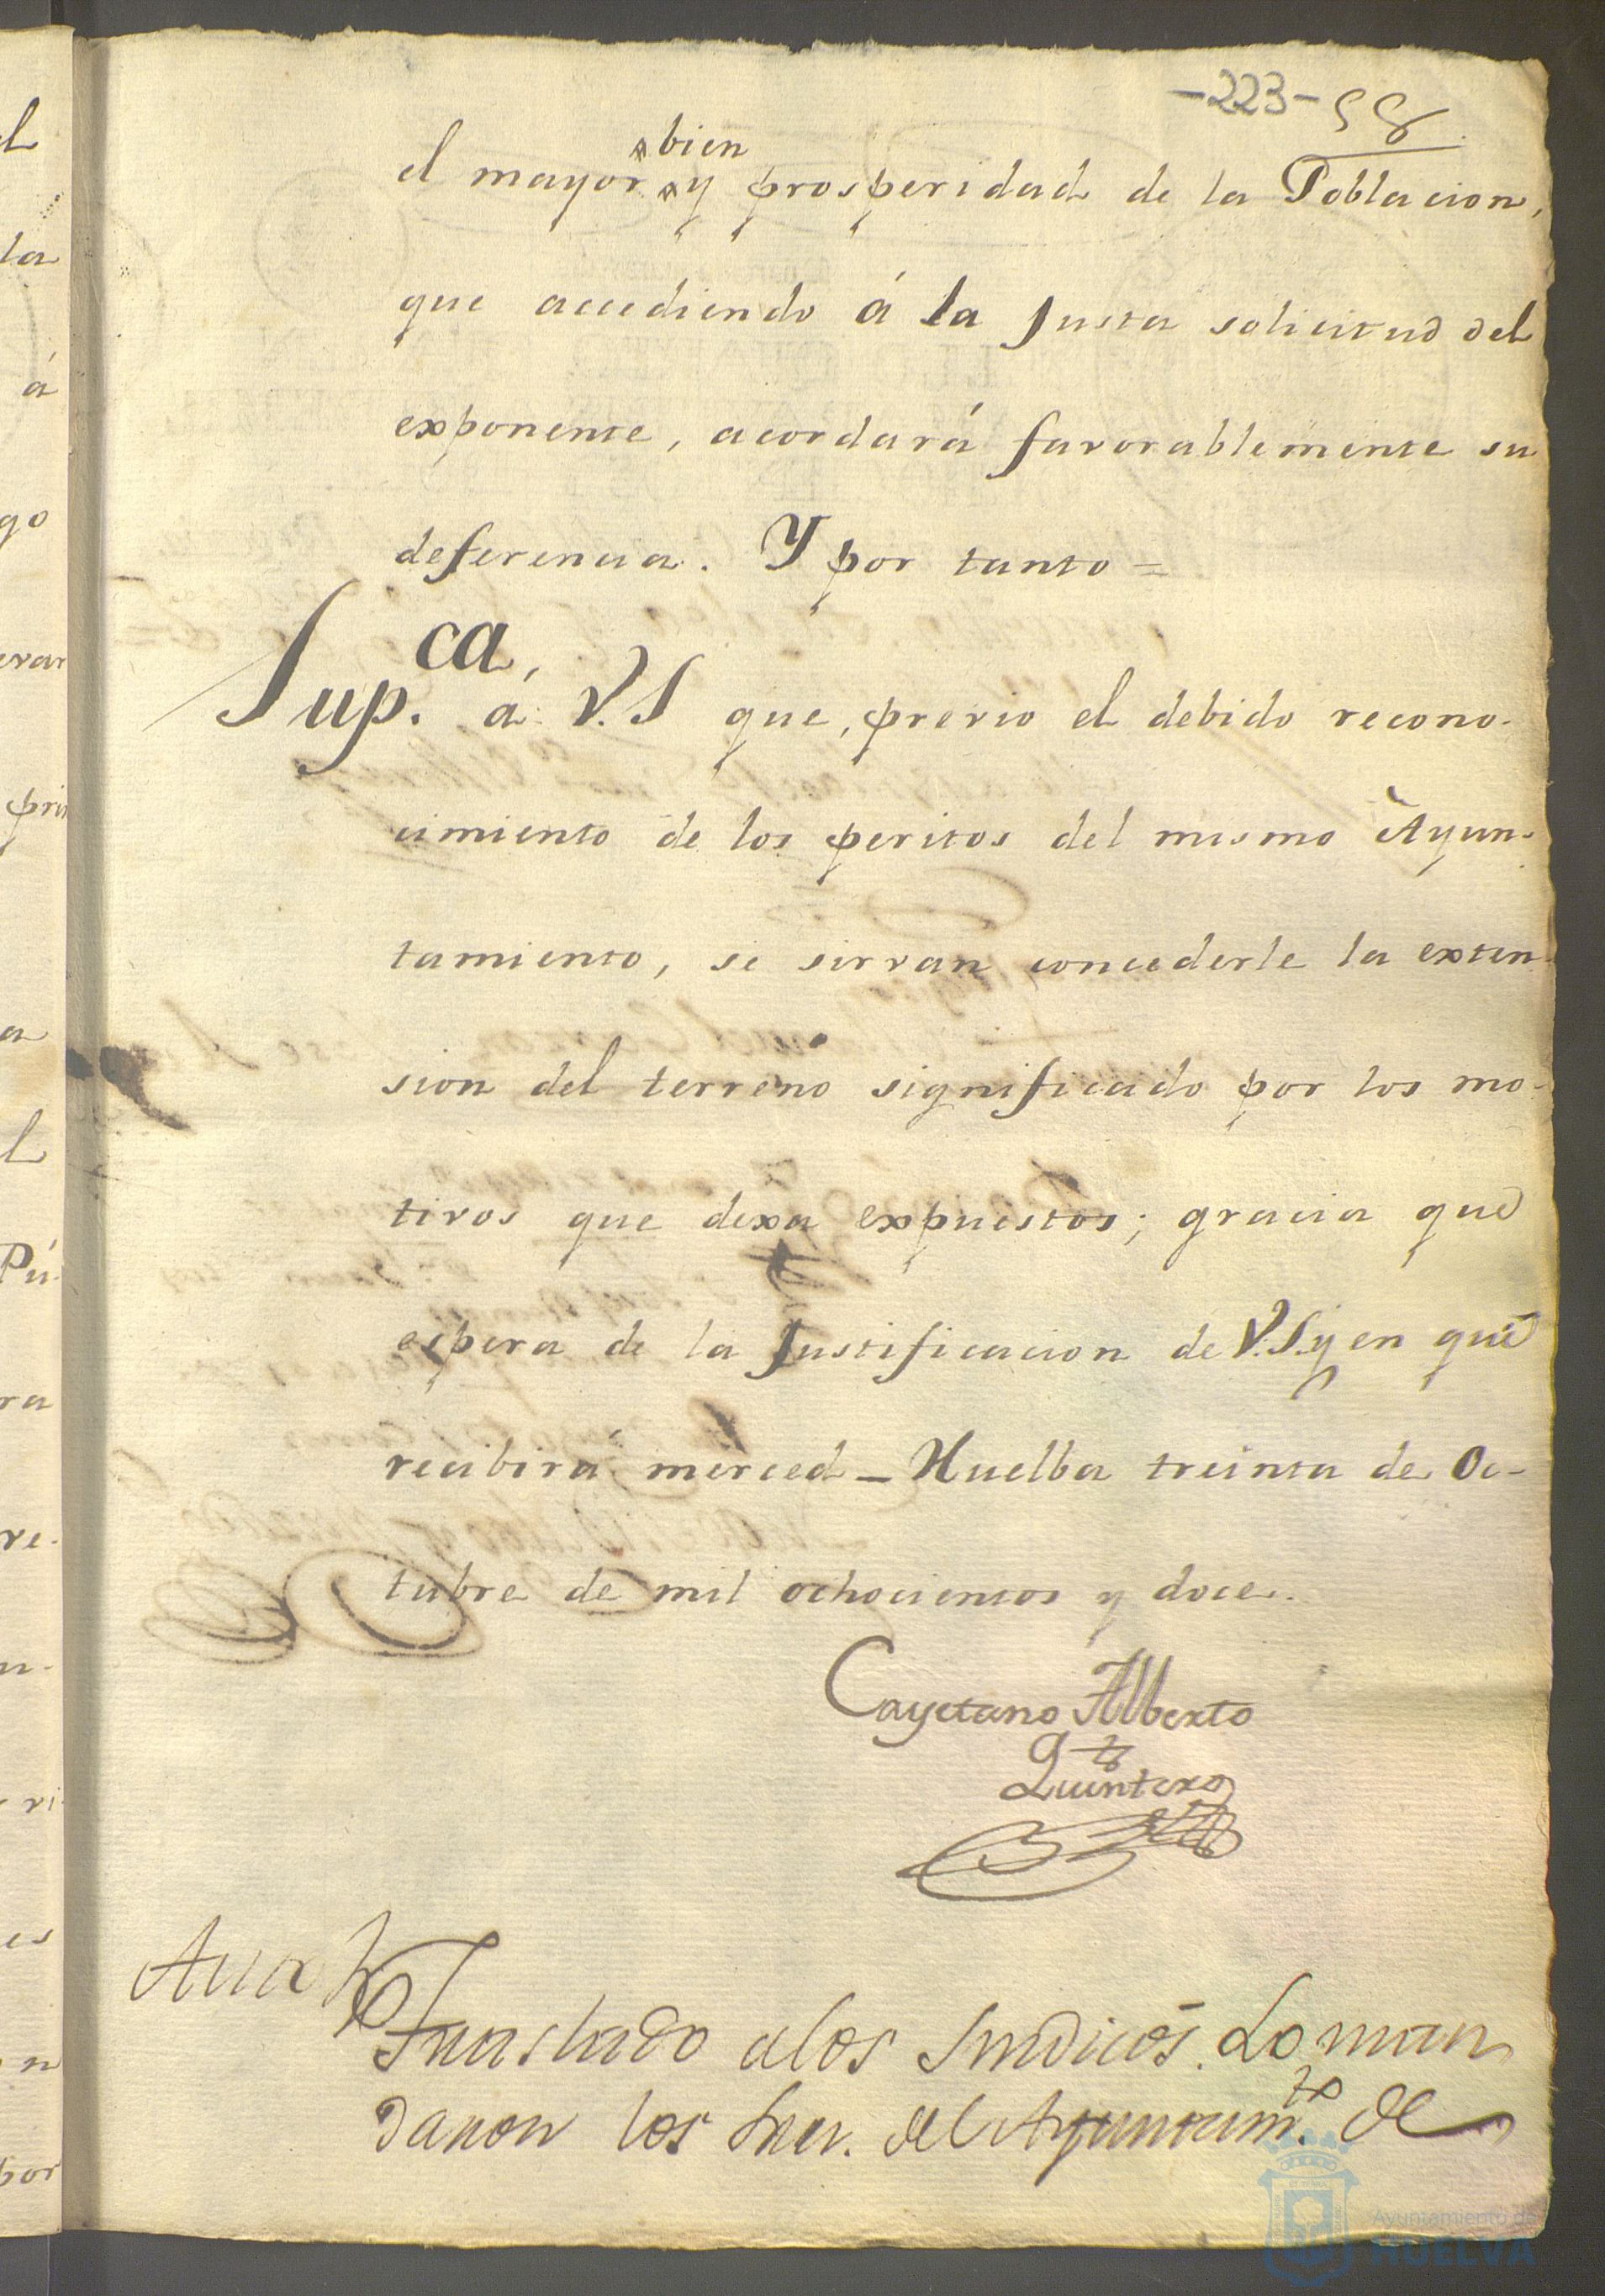 -223- 58
bien
el mayor y prosperidad de la Poblacion,
que accediendo á la Justa solicitud del
exponente, acordará favorablemente su
deferencia. Y por tanto =
Sup.ca á V.S que, previo el debido recono-
cimiento de los peritos del mismo Ayun-
tamiento, se sirvan concederle la exten-
sion del terreno significado por los mo-
tivos que dexa expuestos; gracia que
espera de la Justificacion de V.S. y en que
recibirá merced - Huelba treinta de Oc-
tubre de mil ochocientos y doce.
Cayetano Alberto
Quintero
Auto
Traslado a los Sindicos. Lo man
daron los Sres. del Ayuntam.to de
el
la
á
go
erar
prin
a
l
Pú-
ra
re-
n-
ri-
es
n
bor
Ayuntamiento de
HUELVA